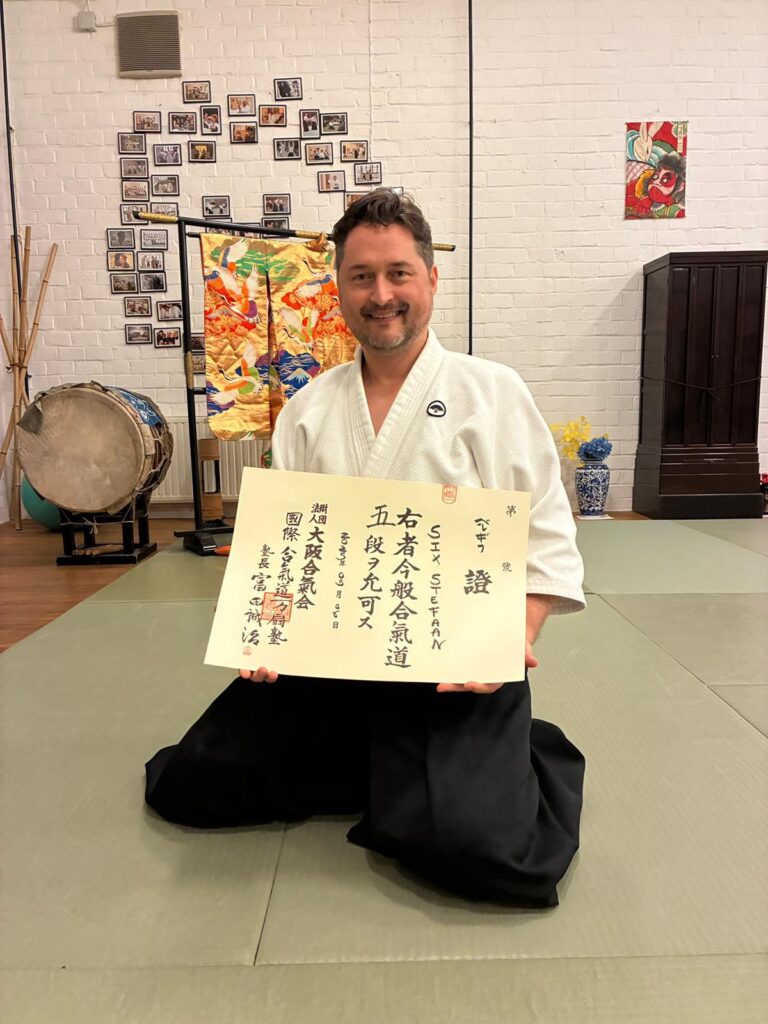 第 號
ベルギー
證
SIX STEFAAN
右者今般合氣道
五段ヲ允可ス
月 日
財団法人 大阪合氣会
國際 合氣道 扇塾
塾長 富田誠治